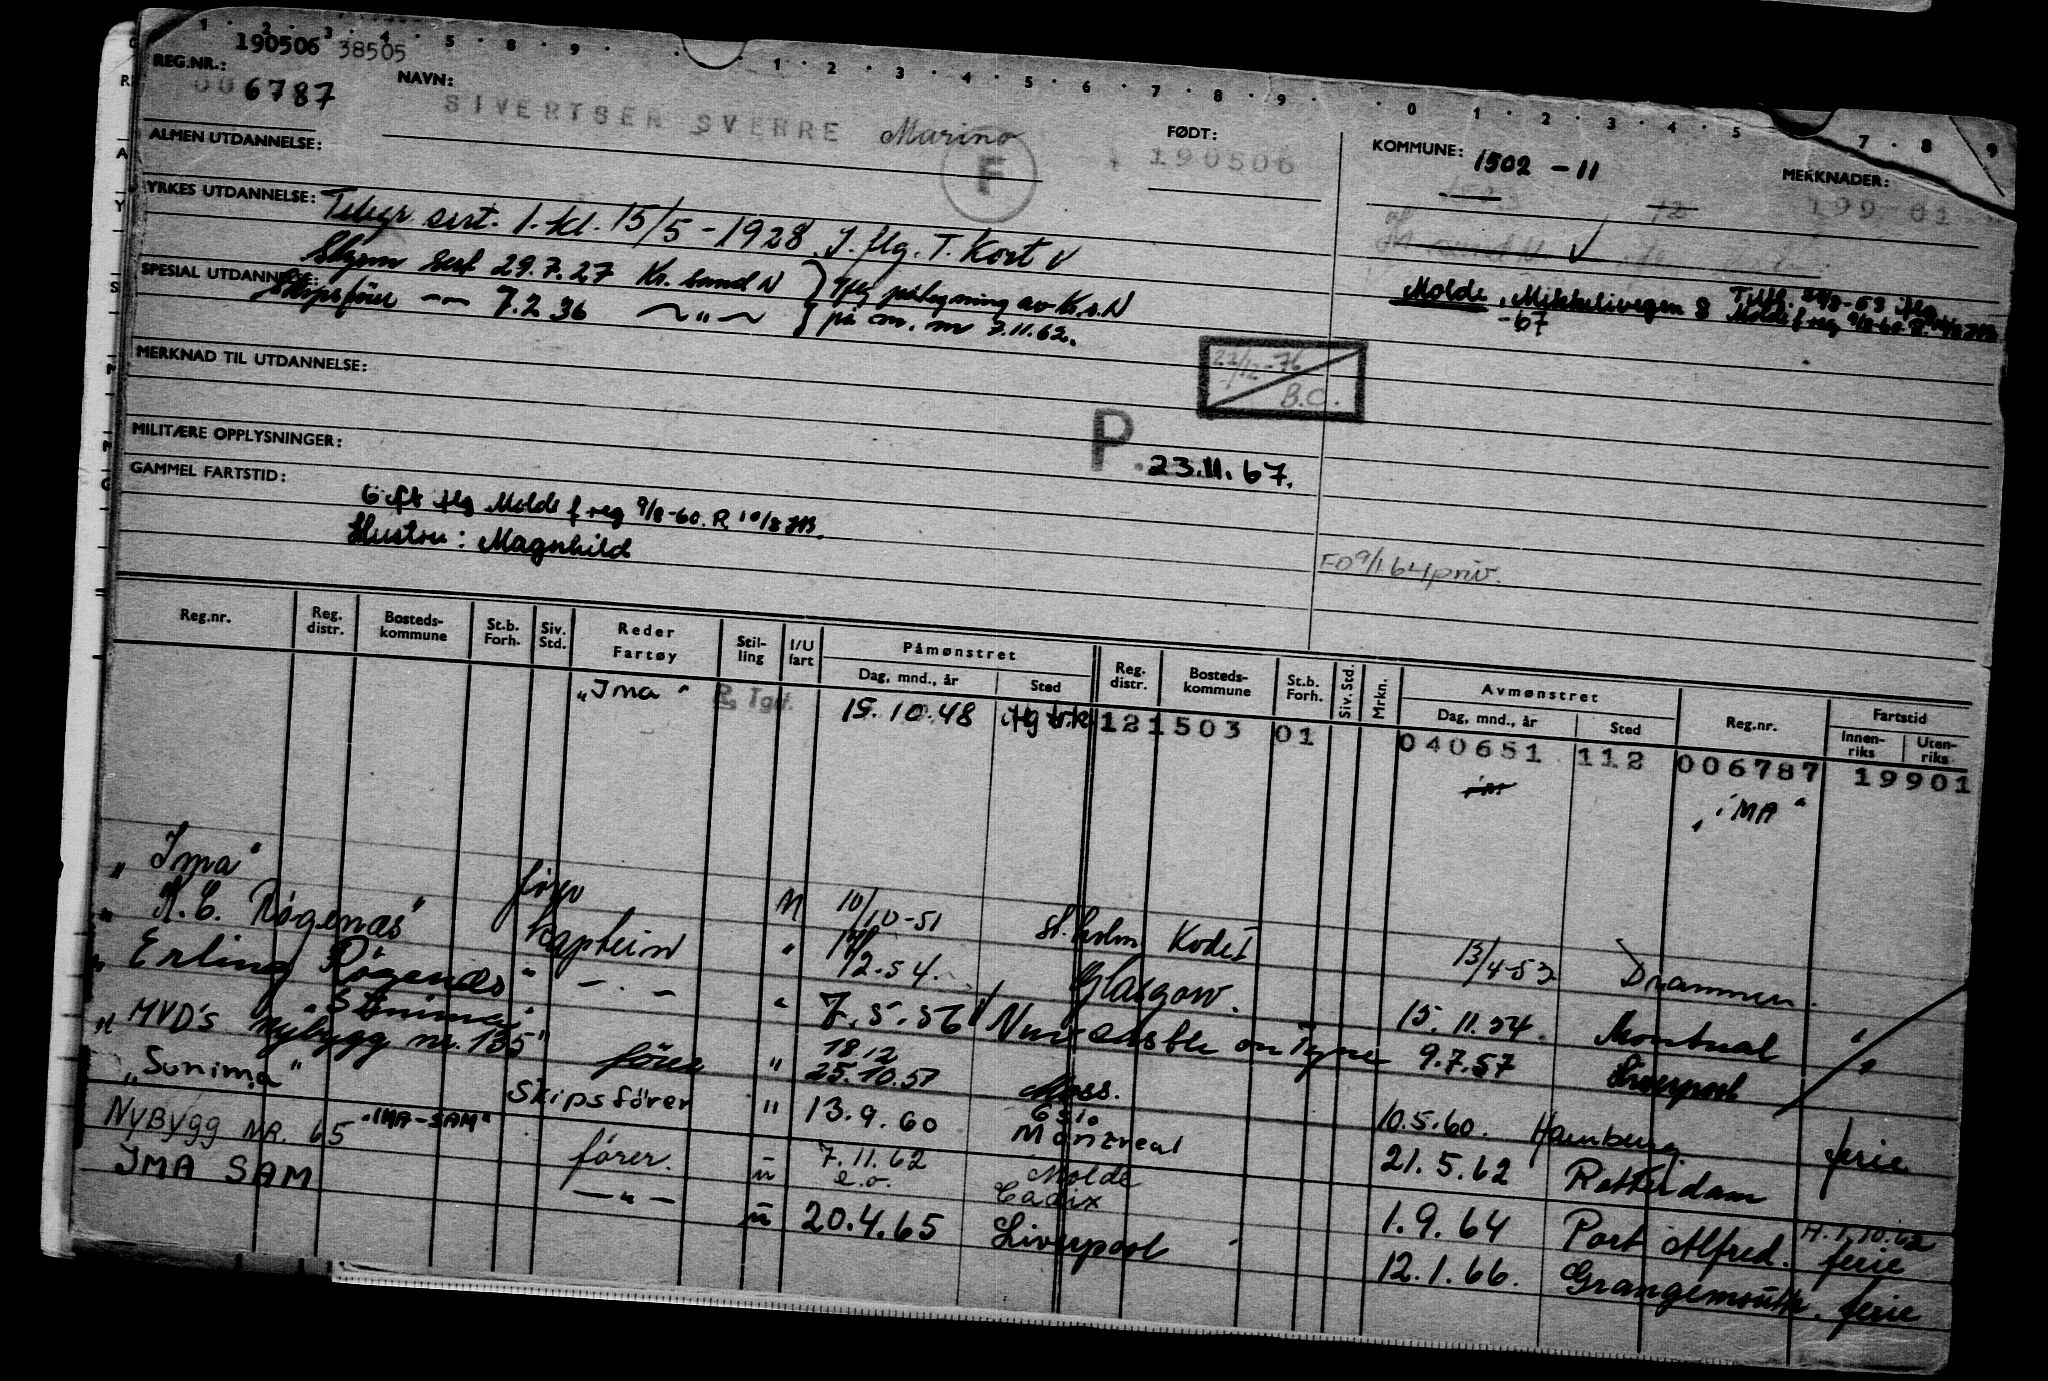 190506 38505
REG.NR.:
006787
NAVN:
SIVERTSEN SVERRE Marino
F
FØDT:
190506
KOMMUNE: 1502 - 11
MERKNADER:
199 01
ALMEN UTDANNELSE:
YRKES UTDANNELSE: Telegr sert. 1. kl. 15/5 - 1928. I. flg. T. Kort V
Styrm Sert 29.7.27 Kr. sand N
SPESIAL UTDANNELSE:
Skipsfører — 7.2 36 — " —
iflg påtegning av Kr.s.N
på m. m 7.11.62.
Molde, Mikkelivegen 8
-67
Molde f reg 9/8-60. R.
MERKNAD TIL UTDANNELSE:
22/12-76
B.O.
P. 23.11.67.
MILITÆRE OPPLYSNINGER:
GAMMEL FARTSTID:
Gift iflg Molde f reg 9/8-60. R 10/8 HB.
Hustru: Magnhild
FO 9/1 64 priv.
Reg.nr.
Reg. distr.
Bosteds-kommune
St.b. Forh.
Siv. Std.
Reder Fartøy
Stil-ling
I/U fart
Påmønstret
Dag, mnd., år
Sted
Reg. distr.
Bosteds-kommune
St.b. Forh.
Siv. Std.
Mrkn.
Avmønstret
Dag, mnd., år
Sted
Reg.nr.
Fartstid
Innen-riks
Uten-riks
"Ima" 15.10.48 iflg 12 1503 01 040651 112 006787 19901
"iMA"
"Ima" fører 10/10-51 St.holm Kode I 13/4-53 Drammen.
"K.C. Røgenæs" Kaptein " 2.54. Glasgow. 15.11.54. Montreal "
"Erling Røgenæs" — . — " 7.5.56 Newcastle on Tyne 9.7.57 Liverpool "
"Sunima"
"MVD's nybygg nr. 135" fører " 18.12 25.10.57 Moss. 10.5.60. Hamburg ferie
"Sunima" Skipsfører " 13.9.60 Montreal 21.5.62 Rotterdam
"IMA-SAM"
Nybygg NR. 65 fører. u 7.11.62 Molde 1.9.64 Port Alfred. ferie
e.o. Cadix
IMA SAM — " — u 20.4.65 Liverpool 12.1.66. Grangemouth. ferie